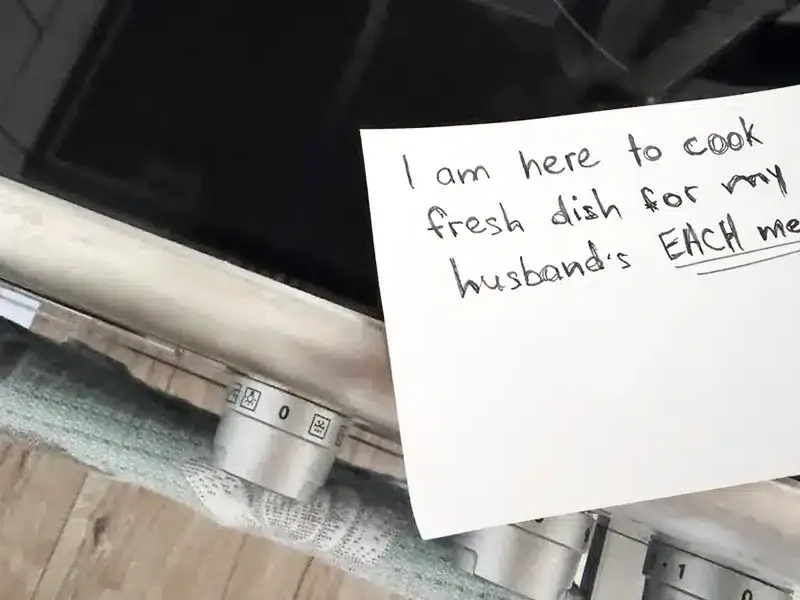 I am here to cook
fresh dish for my
husband's EACH me
0
1
0